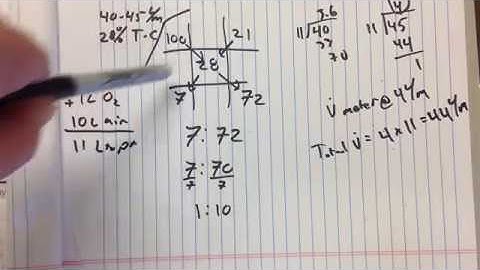 40-45 L/m
28% T-C
100 21
28
7 72
+ 1L O2
10L air
11 L
7 : 72
7 : 70
7 7
1 : 10
3.6
11 40
33
70
11 45
44
1
V̇ meter @ 4 L/m
Total V̇ = 4 x 11 = 44 L/m